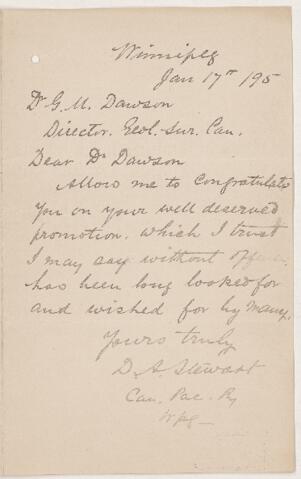 Winnipeg
Jan 17th 195
Dr G. M. Dawson
Director. Geol. Sur. Can.
Dear Dr Dawson
Allow me to congratulate
you on your well deserved
promotion. which I trust
I may say without offence
has been long looked for
and wished for by many.
Yours truly
D. A. Stewart
Can. Pac. Ry
Wpg